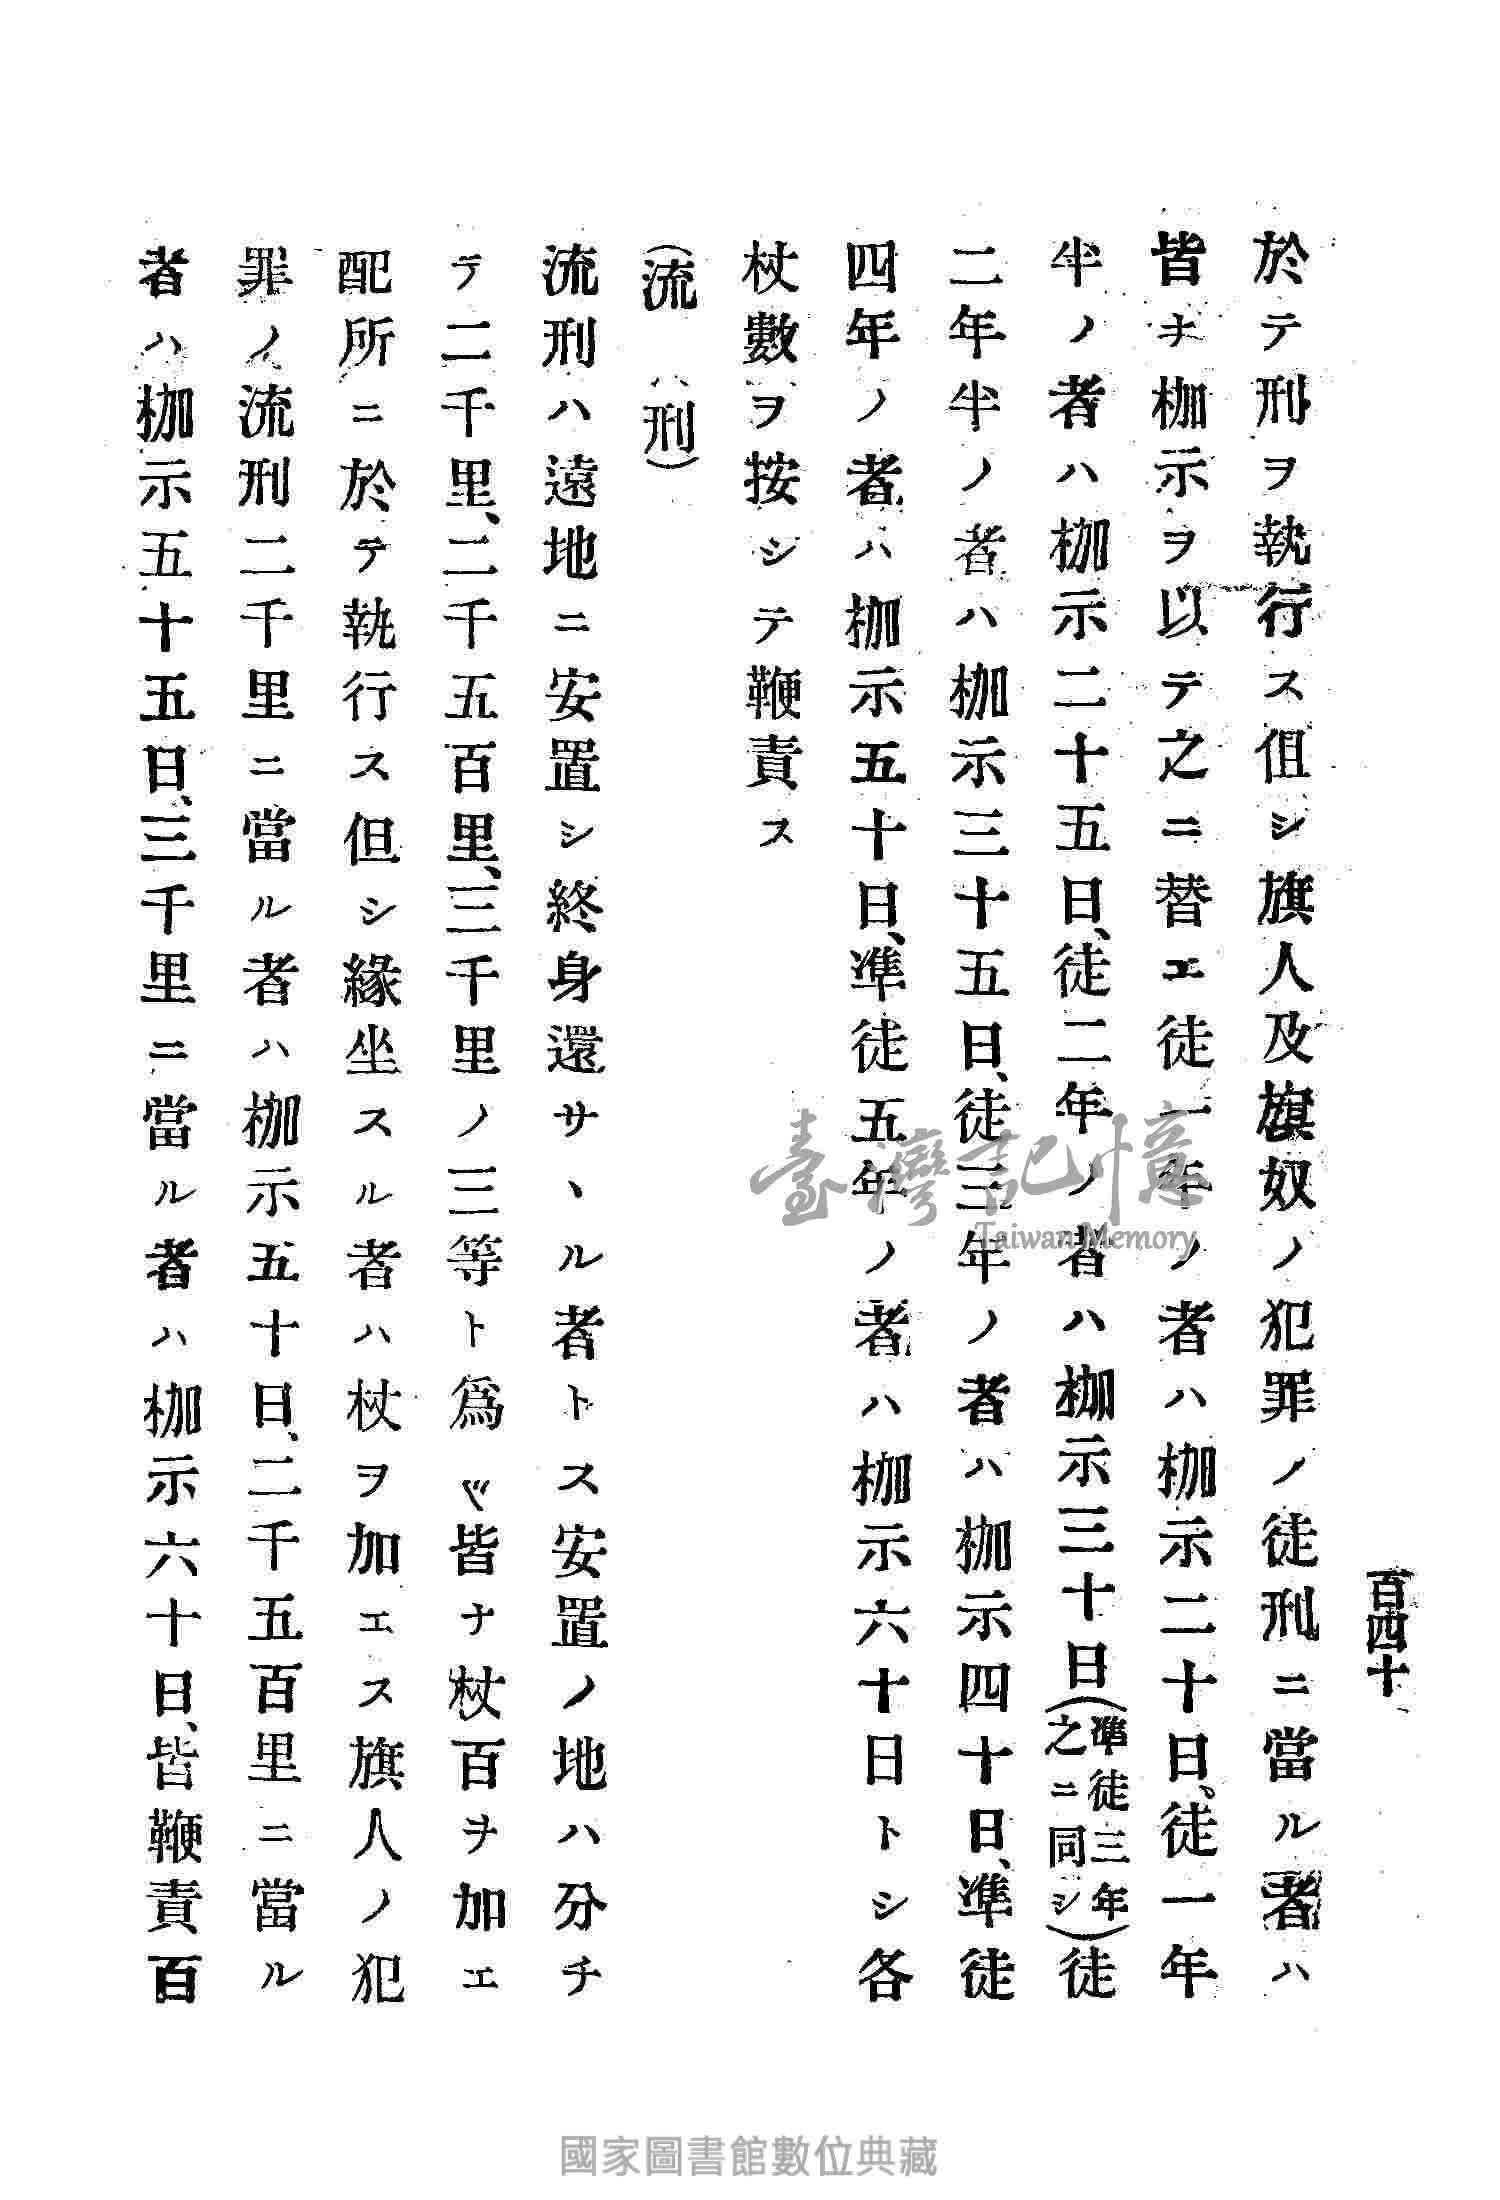 百四十
於テ刑ヲ執行ス但シ旗人及旗奴ノ犯罪ノ徒刑ニ當ル者ハ
皆ナ枷示ヲ以テ之ニ替エ徒一年ノ者ハ枷示二十日、徒一年
半ノ者ハ枷示二十五日、徒二年ノ者ハ枷示三十日(準徒三年之ニ同シ)徒
二年半ノ者ハ枷示三十五日、徒三年ノ者ハ枷示四十日、準徒
四年ノ者ハ枷示五十日、準徒五年ノ者ハ枷示六十日トシ各
杖數ヲ按シテ鞭責ス
(流刑)
流刑ハ遠地ニ安置シ終身還サヽル者トス安置ノ地ハ分チ
テ二千里、二千五百里、三千里ノ三等ト爲シ皆ナ杖百ヲ加エ
配所ニ於テ執行ス但シ緣坐スル者ハ杖ヲ加エス旗人ノ犯
罪ノ流刑二千里ニ當ル者ハ枷示五十日、二千五百里ニ當ル
者ハ枷示五十五日、三千里ニ當ル者ハ枷示六十日、皆鞭責百
臺灣記憶
Taiwan Memory
國家圖書館數位典藏